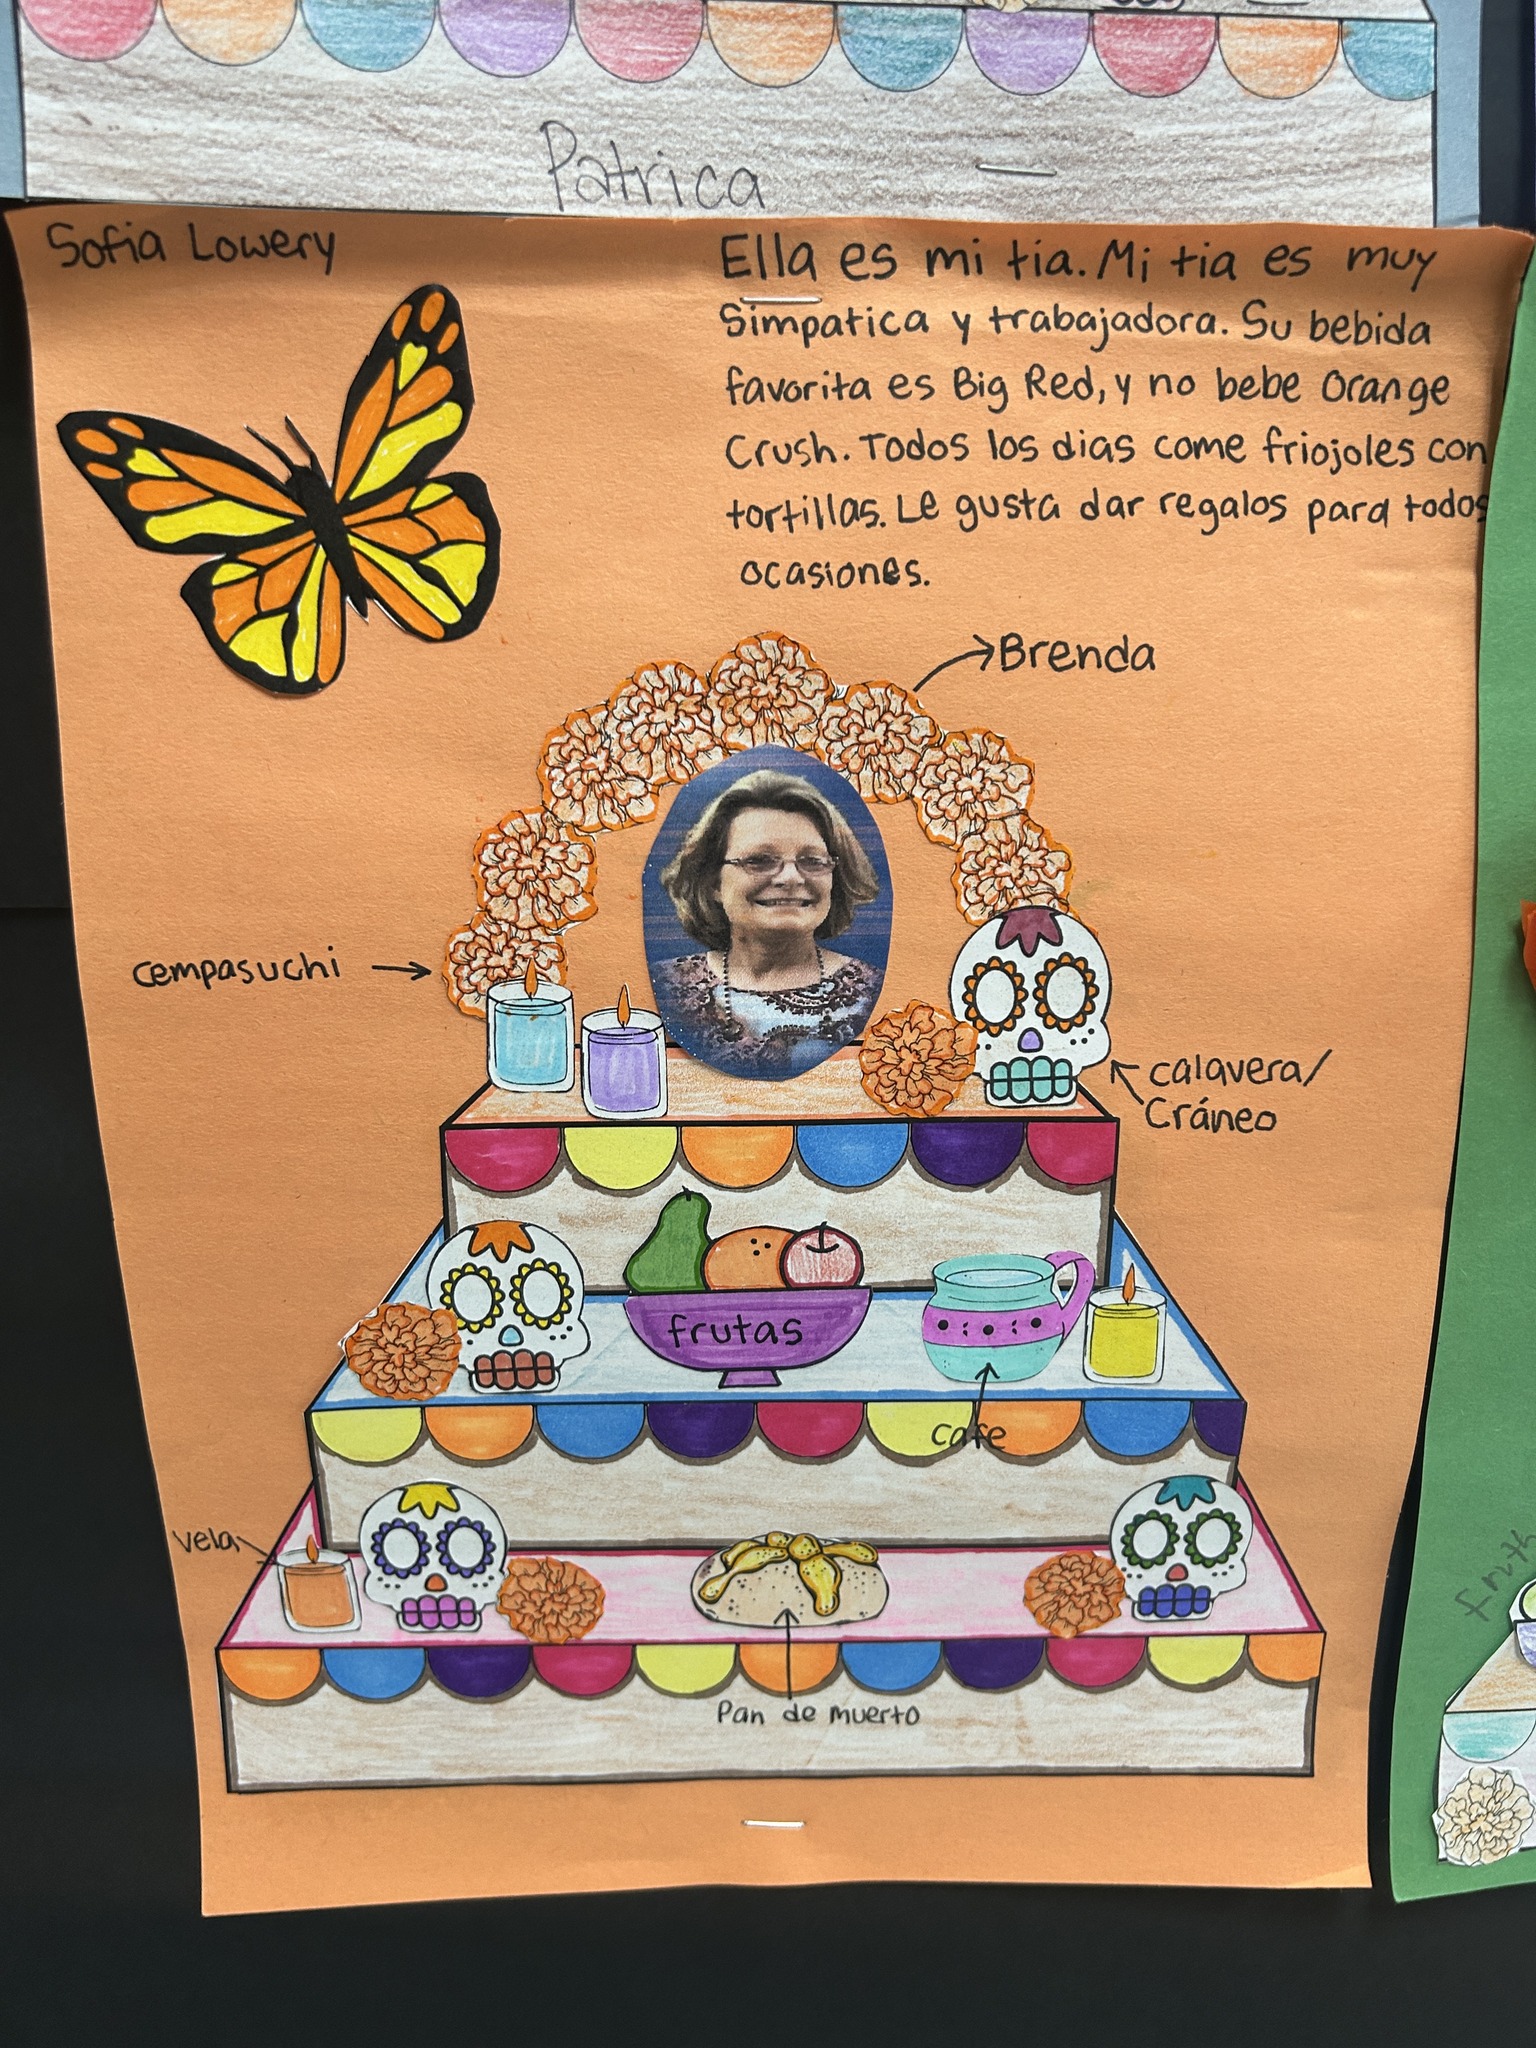 Patrica
Sofia Lowery
Ella es mi tia. Mi tia es muy
Simpatica y trabajadora. Su bebida
favorita es Big Red, y no bebe Orange
Crush. Todos los dias come friojoles con
tortillas. Le gusta dar regalos para todos
ocasiones.
Brenda
cempasuchi
calavera/
Cráneo
frutas
cafe
vela
Pan de muerto